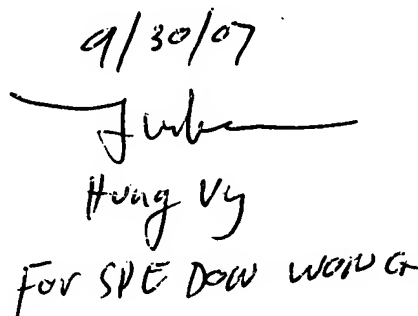 9/30/07
Hung Vy
For SPE DOW WONG